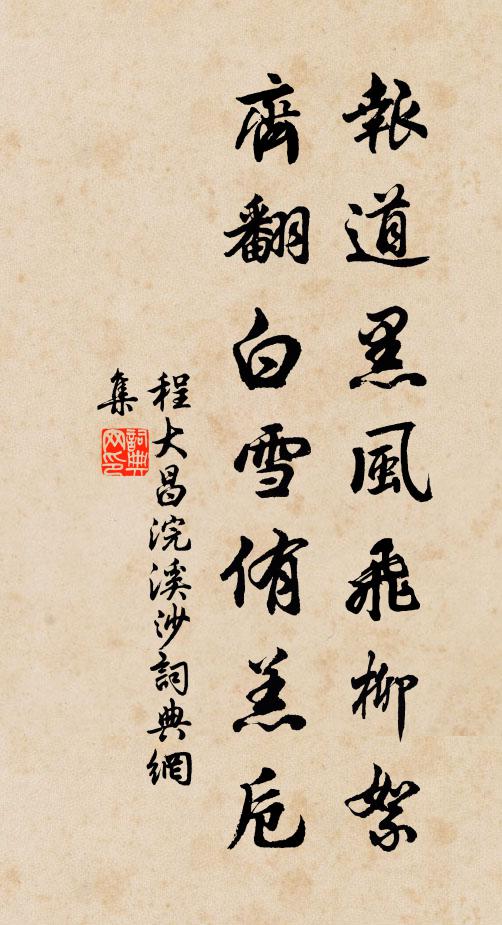 報道黑風飛柳絮
齊翻白雪侑羔卮
程大昌浣溪沙詞典網
集
詞典網印